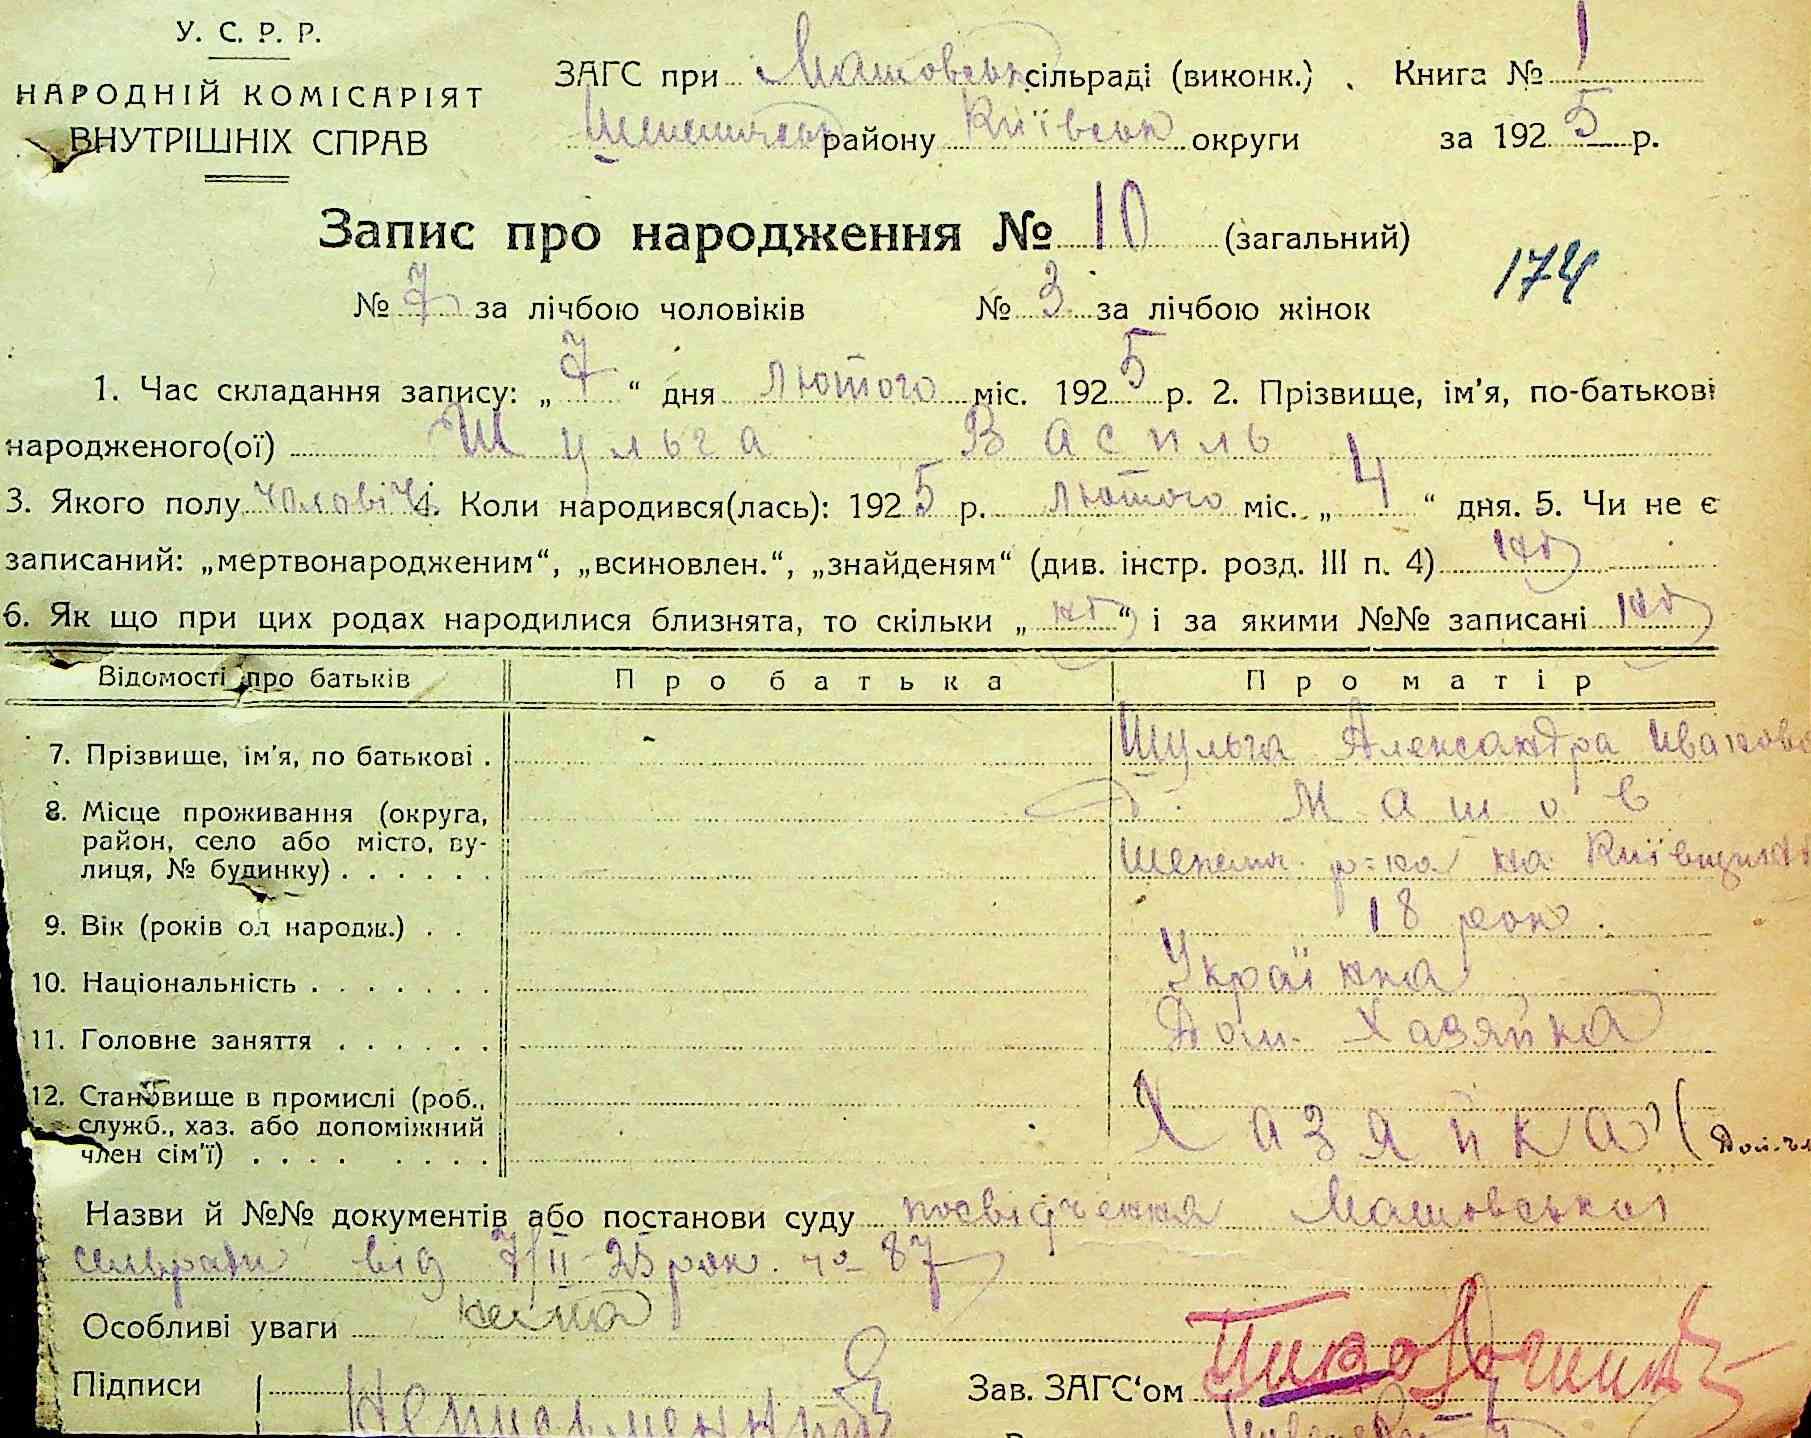 У. С. Р. Р.
НАРОДНІЙ КОМІСАРІЯТ
ВНУТРІШНІХ СПРАВ
ЗАГС при Машовськ сільраді (виконк.) . Книга № 1
району Київськ округи за 1925 р.
Запис про народження № 10 (загальний)
174
№ 7 за лічбою чоловіків № 3 за лічбою жінок
1. Час складання запису: „ 7 “ дня лютого міс. 1925 р. 2. Прізвище, ім'я, по-батькові
народженого(ої) Шульга Василь
3. Якого полу чоловічі 4. Коли народився(лась): 1925 р. лютого міс. „ 4 “ дня. 5. Чи не є
записаний: „мертвонародженим“, „всиновлен.“, „знайденям“ (див. інстр. розд. III п. 4)
6. Як що при цих родах народилися близнята, то скільки „ “ і за якими №№ записані
Відомості про батьків Про батька Про матір
7. Прізвище, ім'я, по батькові . Шульга Александра Іванов
8. Місце проживання (округа, район, село або місто, ву-лиця, № будинку) . . . . . . Машов
р-ка на Київщині
9. Вік (років од народж.) . . 18 рок.
10. Національність . . . . . . . Українка
11. Головне заняття . . . . . . Дом. Хазяйка
12. Становище в промислі (роб., служб., хаз. або допоміжний член сім'ї) . . . . . . . . Хазяйка (
Назви й №№ документів або постанови суду посвідчення Машовської
сільради від 7/II-25 рок. № 87
Особливі уваги нема
Підписи Неписьменний
Зав. ЗАГС'ом